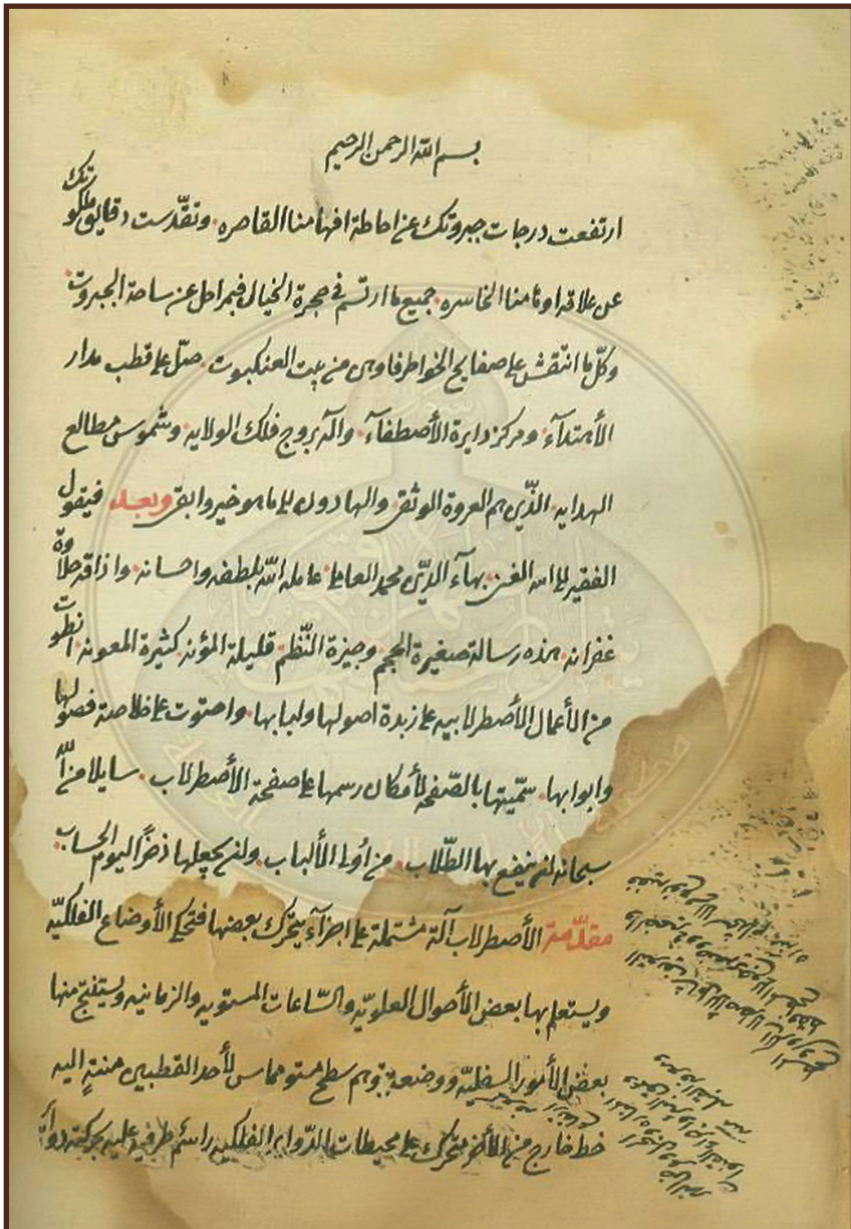 بسم الله الرحمن الرحيم
ارتفعت درجات جبروتك عن احاطة افهامنا القاصره وتقدّست دقايق ملكوتك
عن علاقة اوهامنا الخاسره جميع ما ارتسم في حجرة الخيال فبمراحل عن ساحة الجبروت
وكلّ ما انتقش على صفايح الخواطر فاوهى من بيت العنكبوت صلّ على قطب مدار
الأهتدآء ومركز دايرة الأصطفآء وآله بروج فلك الولايه وشموس مطالع
الهدايه الذّين هم العروة الوثقى والهادون الى ما هو خير وابقى وبعد فيقول
الفقير الى الله الغنى بهآء الدّين محمد العاملى عامله الله بلطفه واحسانه واذاقه حلاوة
غفرانه هذه رسالة صغيرة الحجم وجيزة النّظم قليلة المؤنه كثيرة المعونه انطوت
من الأعمال الأصطرلابيه على زبدة اصولها ولبابها واحتوت على خلاصة فصولها
وابوابها سمّيتها بالصّفحه لأمكان رسمها على صفحة الأصطرلاب سايلا من الله
سبحانه ان ينفع بها الطّلاب من اولى الألباب وان يجعلها ذخرًا ليوم الحساب
مقدّمة الأصطرلاب آلة مشتملة على اجزآء يتحرّك بعضها فتحكى الأوضاع الفلكيّه
ويستعلم بها بعض الأحوال العلويّه والسّاعات المستويه والزمانيه ويستفتح منها
بعض الأمور السفليّه ووضعه بتوهم سطح مستو مماس لأحد القطبين منتهٍ اليه
خط خارج من الأخر متحرك على محيطات الدّواير الفلكيه راسم طرفه عليه بحركته دوائر